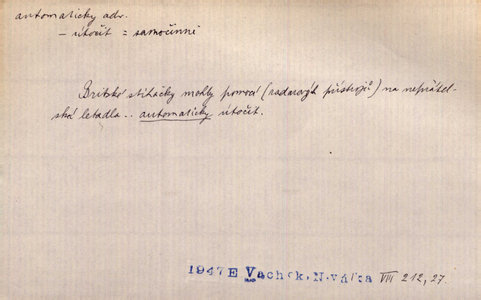 automaticky adv.
– útočit = samočinně
Britské stíhačky mohly pomocí (radarových přístrojů) na nepřátel-
ská letadla .. automaticky útočit.
1947 E Vachek, N. válka VIII 212, 27.